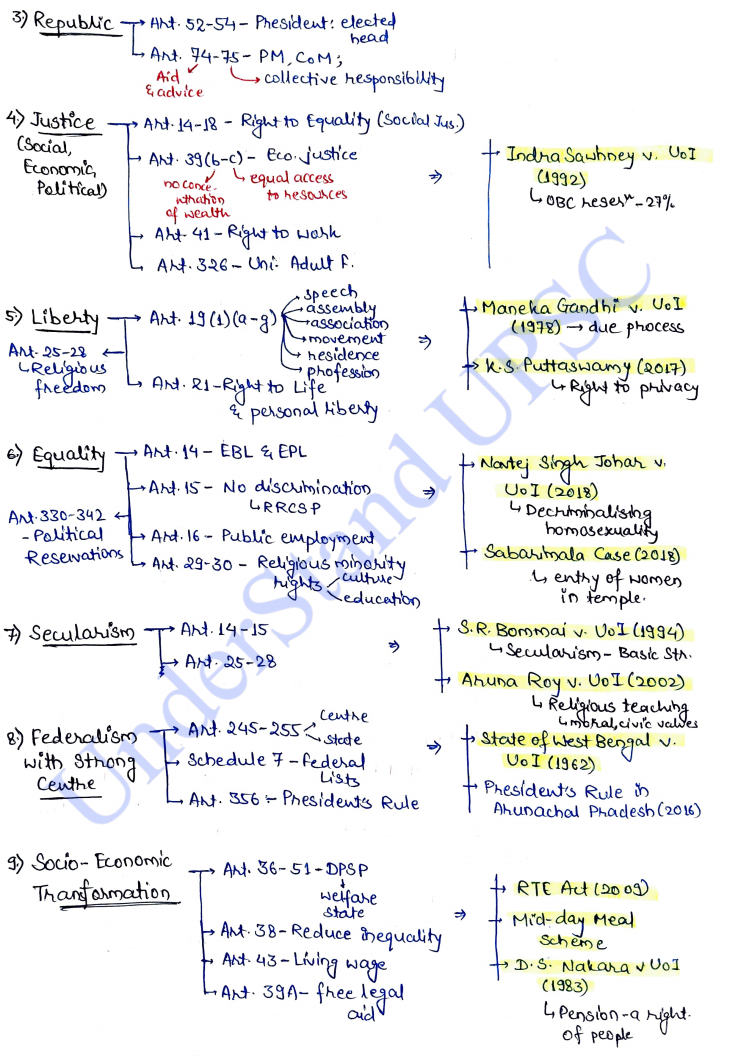 3.) Republic → Art. 52-54 - President: elected
head
→ Art. 74-75 - PM, CoM;
Aid
& advice
→ collective responsibility
4.) Justice
(Social,
Economic,
Political)
→ Art. 14-18 - Right to Equality (Social Jus.)
→ Art. 39(b-c) - Eco. justice
no conce-
ntration
of wealth
equal access
to resources
→ Art. 41 - Right to work
→ Art. 326 - Uni. Adult F.
⇒
→ Indra Sawhney v. UoI
(1992)
↳ OBC reserⁿ - 27%
5.) Liberty
Art. 25-28
↳ Religious
freedom
→ Art. 19(1)(a-g)
speech
assembly
association
movement
residence
profession
→ Art. 21 - Right to Life
& personal liberty
⇒
→ Maneka Gandhi v. UoI
(1978) → due process
→ K.S. Puttaswamy (2017)
↳ Right to privacy
6.) Equality
Art. 330-342
- Political
Reservations
→ Art. 14 - EBL & EPL
→ Art. 15 - No discrimination
↳ RRCSP
→ Art. 16 - Public employment
→ Art. 29-30 - Religious minority
rights
culture
education
⇒
→ Navtej Singh Johar v.
UoI (2018)
↳ Decriminalising
homosexuality
→ Sabarimala Case (2018)
↳ entry of women
in temple.
7.) Secularism
→ Art. 14-15
→ Art. 25-28
⇒
→ S.R. Bommai v. UoI (1994)
↳ Secularism - Basic Str.
→ Aruna Roy v. UoI (2002)
↳ Religious teaching
↳ moral, civic values
8.) Federalism
with strong
Centre
→ Art. 245-255
centre
state
→ Schedule 7 - Federal
Lists
→ Art. 356 :- President's Rule
⇒
→ State of West Bengal v.
UoI (1962)
→ President's Rule in
Arunachal Pradesh (2016)
9.) Socio-Economic
Tranformation
→ Art. 36-51 - DPSP
welfare
state
→ Art. 38 - Reduce inequality
→ Art. 43 - Living wage
→ Art. 39A - free legal
aid
⇒
→ RTE Act (2009)
→ Mid-day Meal
Scheme
→ D.S. Nakara v UoI
(1983)
↳ Pension - a right
of people
UnderStand UPSC